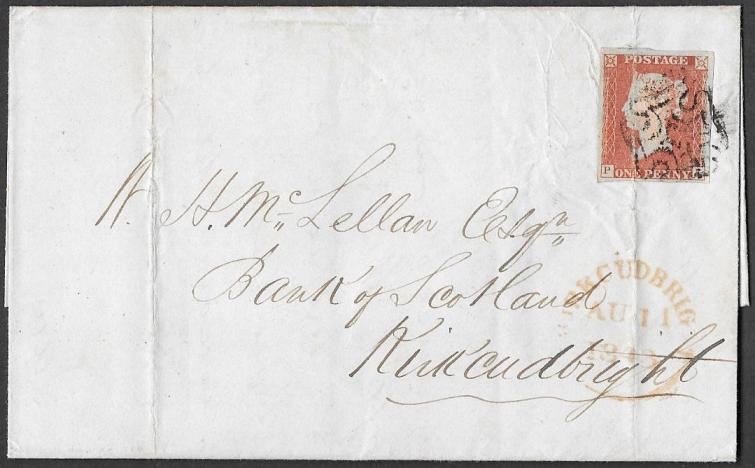 POSTAGE
P
ONE PENNY
W. H. McLellan Esqr
Bank of Scotland
Kirkcudbright
KIRKCUDBRIG
AU 11